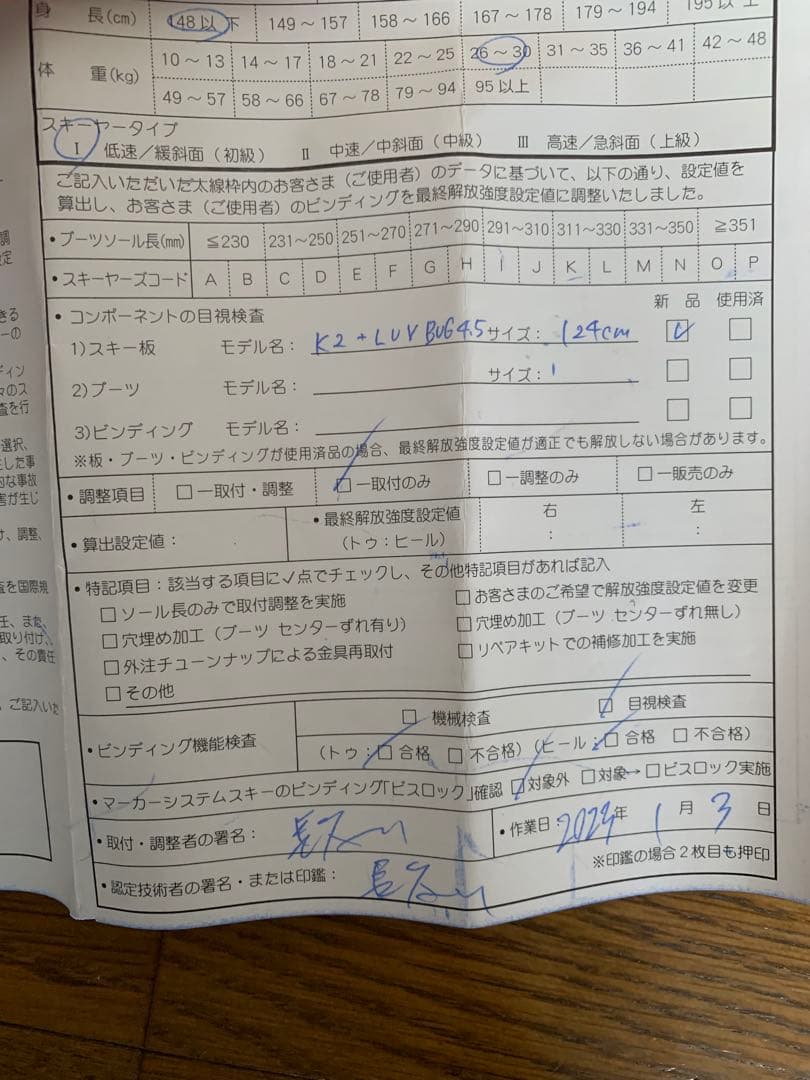 身 長(cm) 148以下 149～157 158～166 167～178 179～194 195以上
体 重(kg) 10～13 14～17 18～21 22～25 26～30 31～35 36～41 42～48
49～57 58～66 67～78 79～94 95以上
スキーヤータイプ
Ⅰ 低速／緩斜面（初級） Ⅱ 中速／中斜面（中級） Ⅲ 高速／急斜面（上級）
ご記入いただいた太線枠内のお客さま（ご使用者）のデータに基づいて、以下の通り、設定値を
算出し、お客さま（ご使用者）のビンディングを最終解放強度設定値に調整いたしました。
•ブーツソール長(mm) ≦230 231～250 251～270 271～290 291～310 311～330 331～350 ≧351
•スキーヤーズコード A B C D E F G H I J K L M N O P
•コンポーネントの目視検査 新 品 使用済
1)スキー板 モデル名： K2 + LUV BUG 4.5 サイズ： 124cm ☑ □
2)ブーツ モデル名： サイズ： □ □
3)ビンディング モデル名： □ □
※板・ブーツ・ビンディングが使用済品の場合、最終解放強度設定値が適正でも解放しない場合があります。
•調整項目 □ ー取付・調整 ☑ ー取付のみ □ ー調整のみ □ ー販売のみ
•算出設定値： •最終解放強度設定値 右 左
（トゥ：ヒール） ： ：
•特記項目：該当する項目に✓点でチェックし、その他特記項目があれば記入
□ ソール長のみで取付調整を実施 □ お客さまのご希望で解放強度設定値を変更
□ 穴埋め加工（ブーツ センターずれ有り） □ 穴埋め加工（ブーツ センターずれ無し）
□ 外注チューンナップによる金具再取付 □ リペアキットでの補修加工を実施
□ その他
•ビンディング機能検査 □ 機械検査 ☑ 目視検査
（トゥ：☑ 合格 □ 不合格）（ヒール：☑ 合格 □ 不合格）
•マーカーシステムスキーのビンディング「ビスロック」確認 ☑ 対象外 □ 対象→□ ビスロック実施
•取付・調整者の署名： •作業日： 年 1 月 3 日
•認定技術者の署名・または印鑑： ※印鑑の場合2枚目も押印